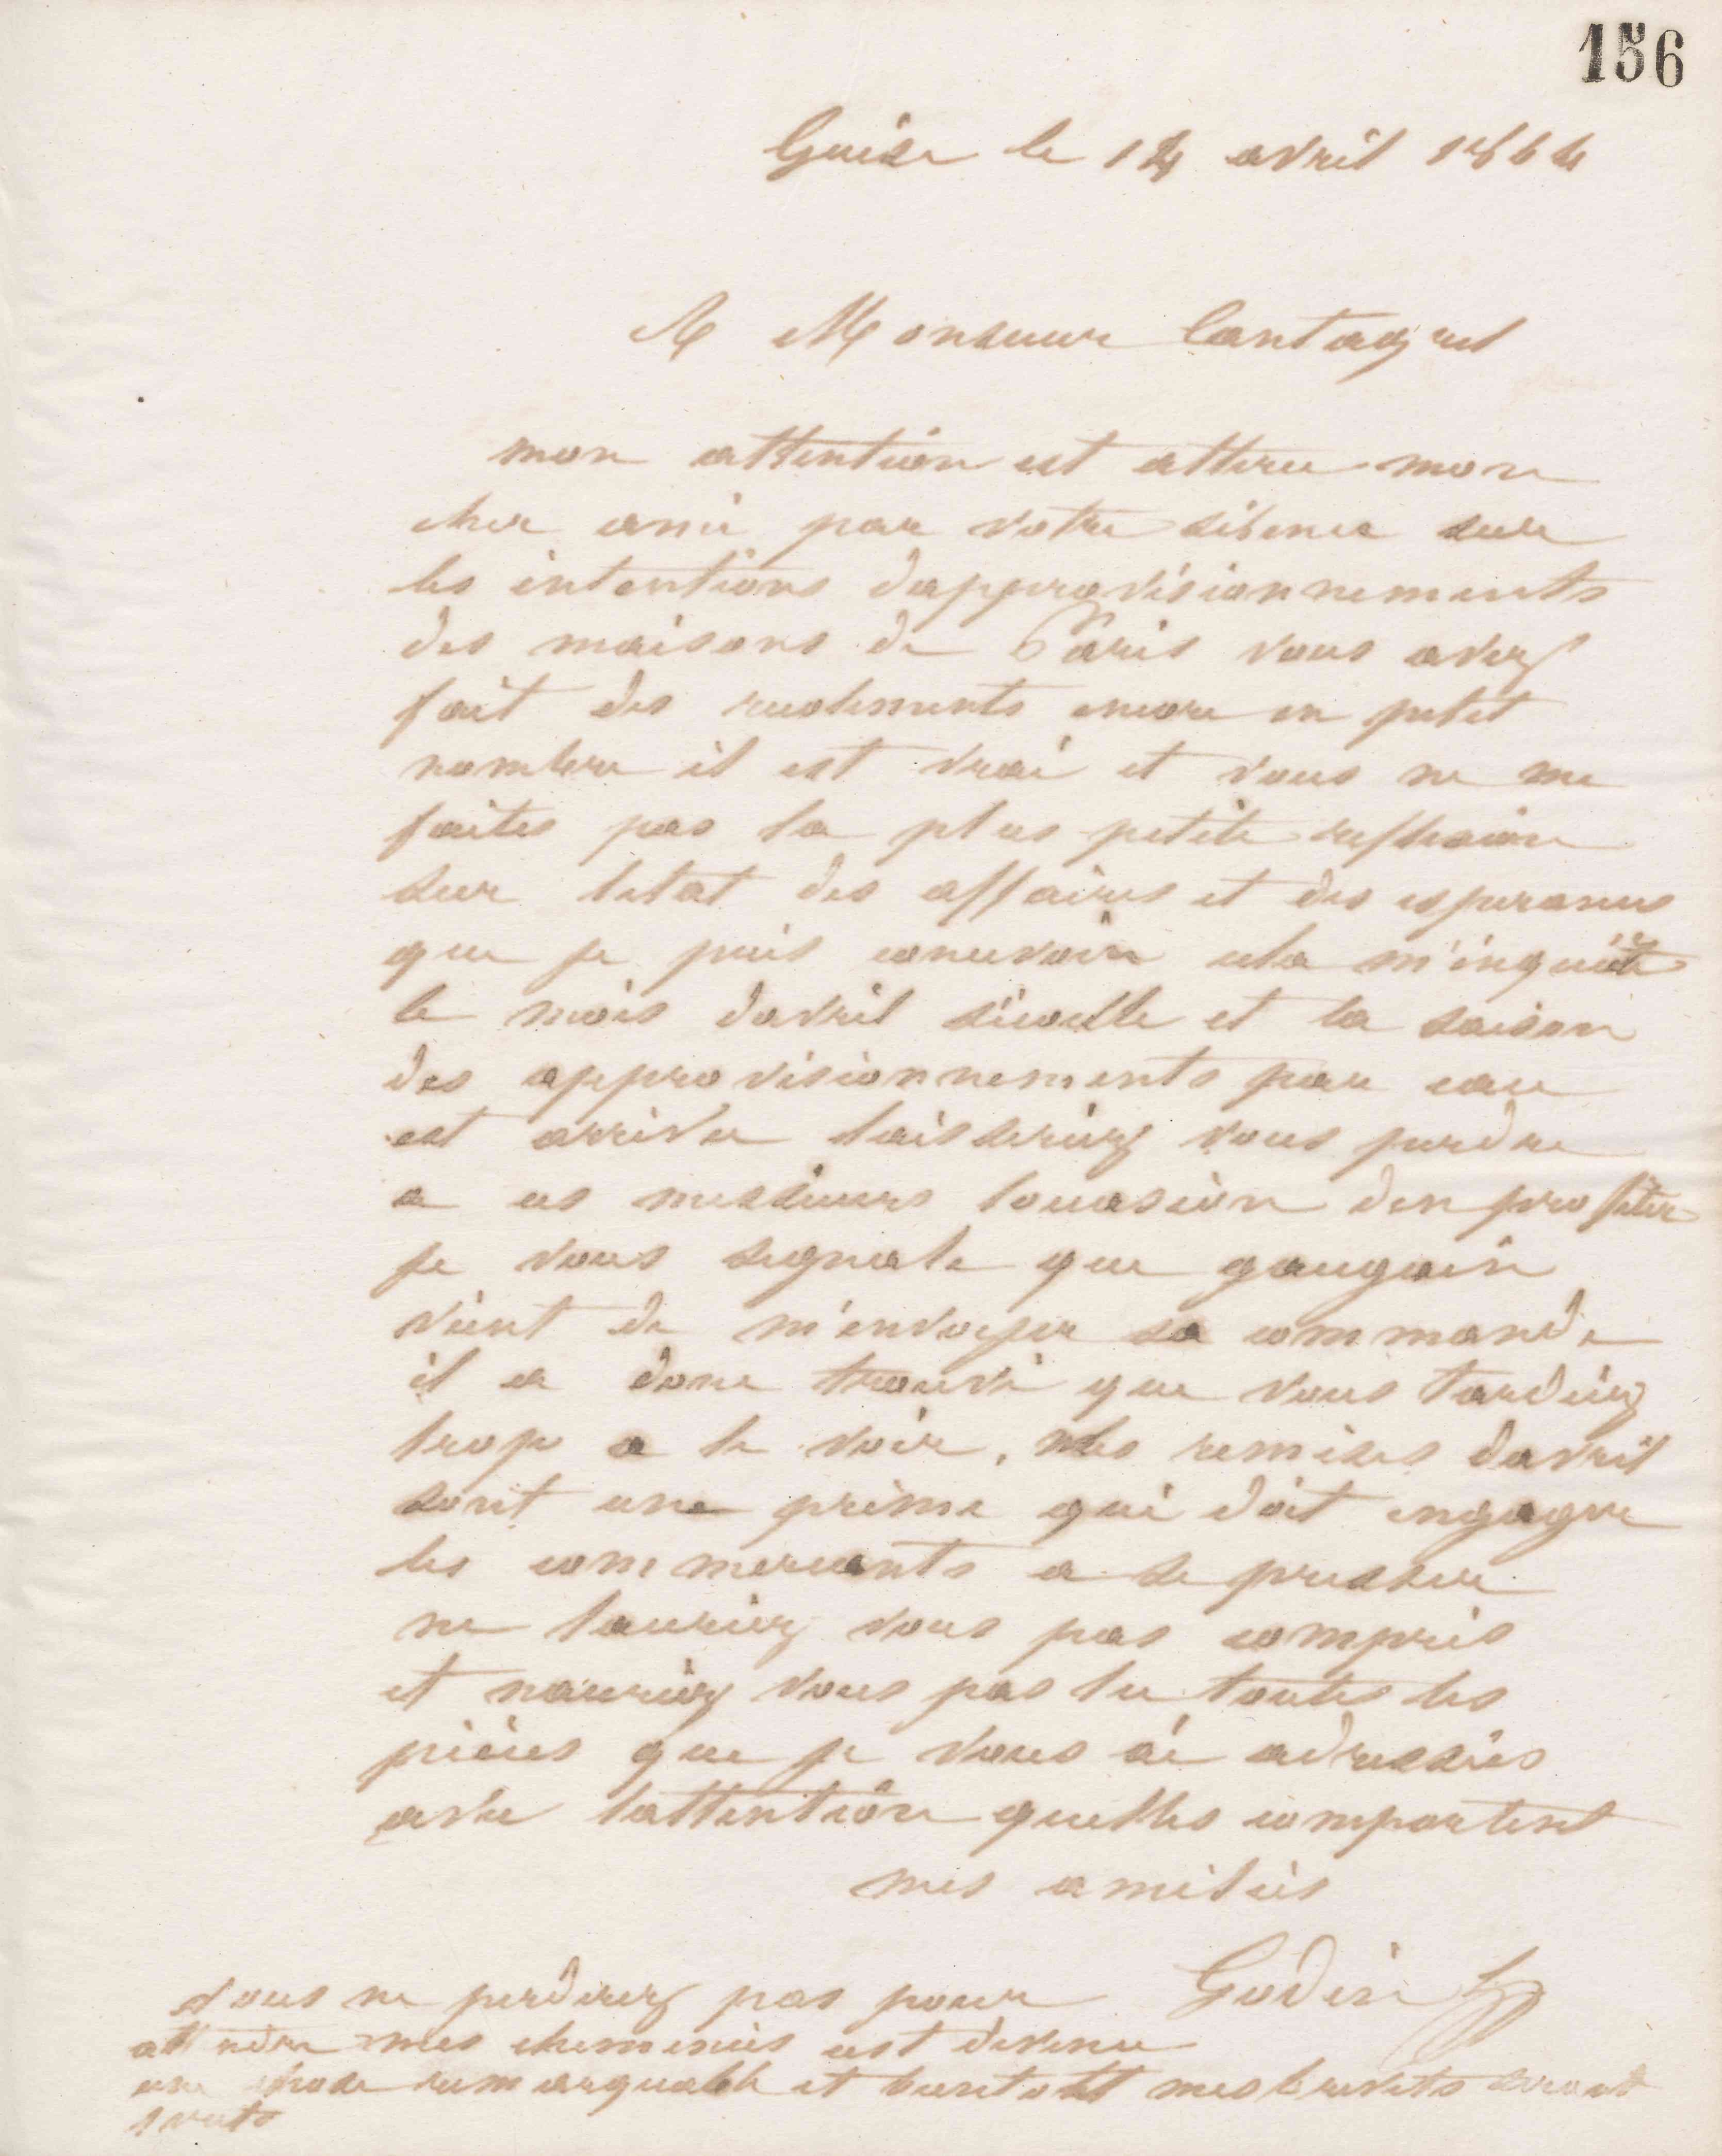 156
Guise le 14 avril 1864
A Monsieur Cantagrel
mon attention est attiree mon
cher ami par votre silence sur
les intentions dapprovisionnements
des maisons de Paris vous avez
fait des recolements encore en petit
nombre il est vrai et vous ne me
faites pas la plus petite reflexion
sur letat des affaires et des esperances
que je puis concevoir cela m'inquiète
le mois davril sécoulle et la saison
des approvisionnements par eau
est arrivee laisseriez vous perdre
a ces messieurs loccasion den profiter
je vous segnale que gaugain
vient de m'envoyer sa commande
il a donc trouvé que vous tardiez
trop a le voir, mes remises davril
sont une prime qui doit engager
les commercants a se presser
ne lauriez vous pas compris
et nauriez vous pas lu toutes les
pièces que je vous ai adressées
avec lattention quelles comportent
mes amitiés
Godin
vous ne perdrez pas pour
attendre mes cheminées est devenu
une chose remarquable et bientott mes brevets seront